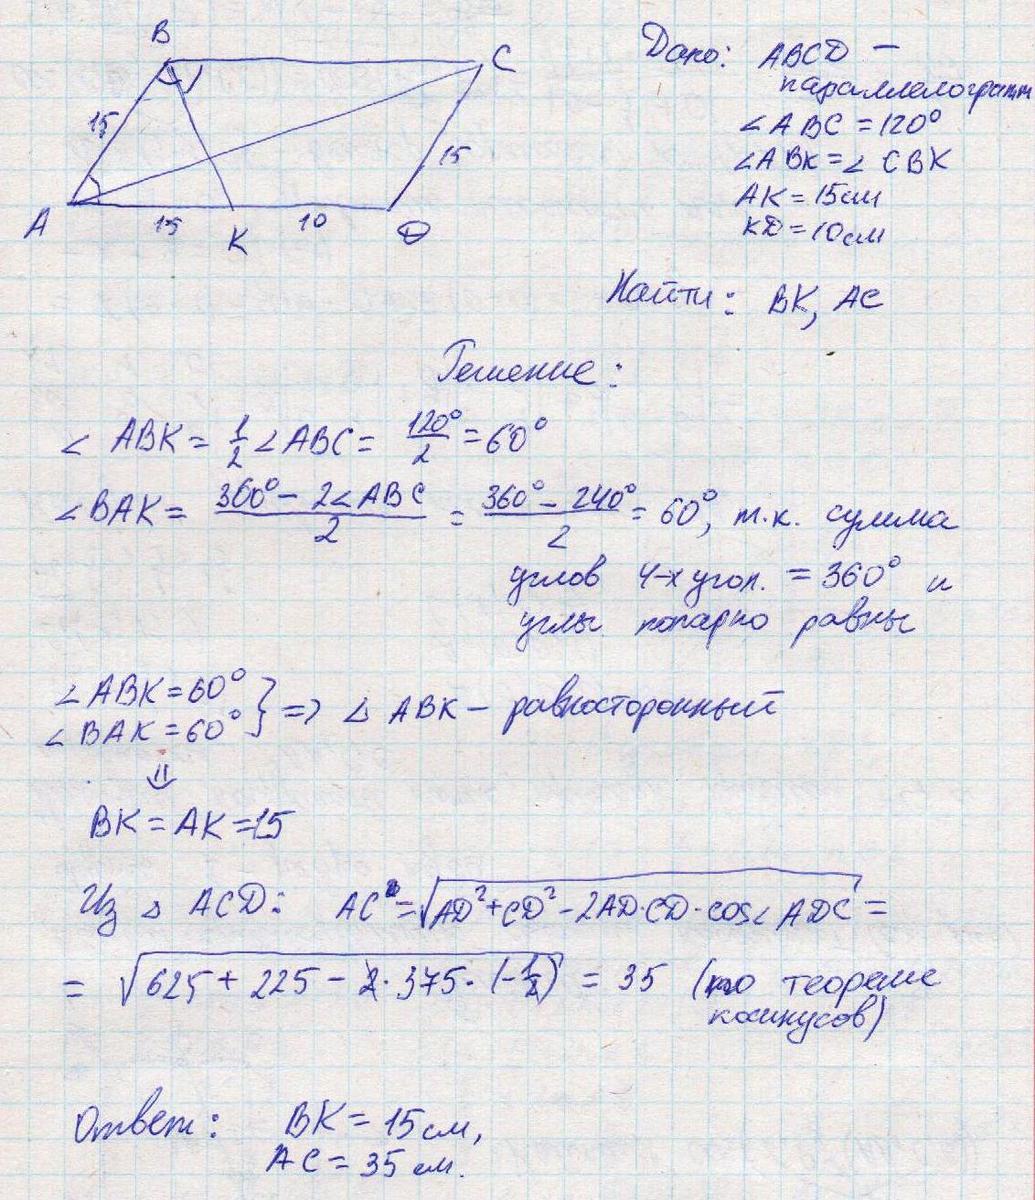 B
C
15
15
A
15
K
10
D
Дано: ABCD —
параллелограмм
∠ABC = 120°
∠ABK = ∠CBK
AK = 15см
KD = 10см
Найти: BK, AC
Решение:
∠ABK = 1/2 ∠ABC = 120°/2 = 60°
∠BAK = (360° - 2∠ABC)/2 = (360° - 240°)/2 = 60°, т.к. сумма
углов 4-х угол. = 360° и
углы попарно равны
∠ABK = 60°
∠BAK = 60° } => △ABK – равносторонный
⇓
BK = AK = 15
Из △ ACD: AC = √(AD² + CD² - 2AD·CD·cos∠ADC) =
= √(625 + 225 - 2·375·(-1/2)) = 35 (по теореме
косинусов)
Ответ: BK = 15см,
AC = 35см.